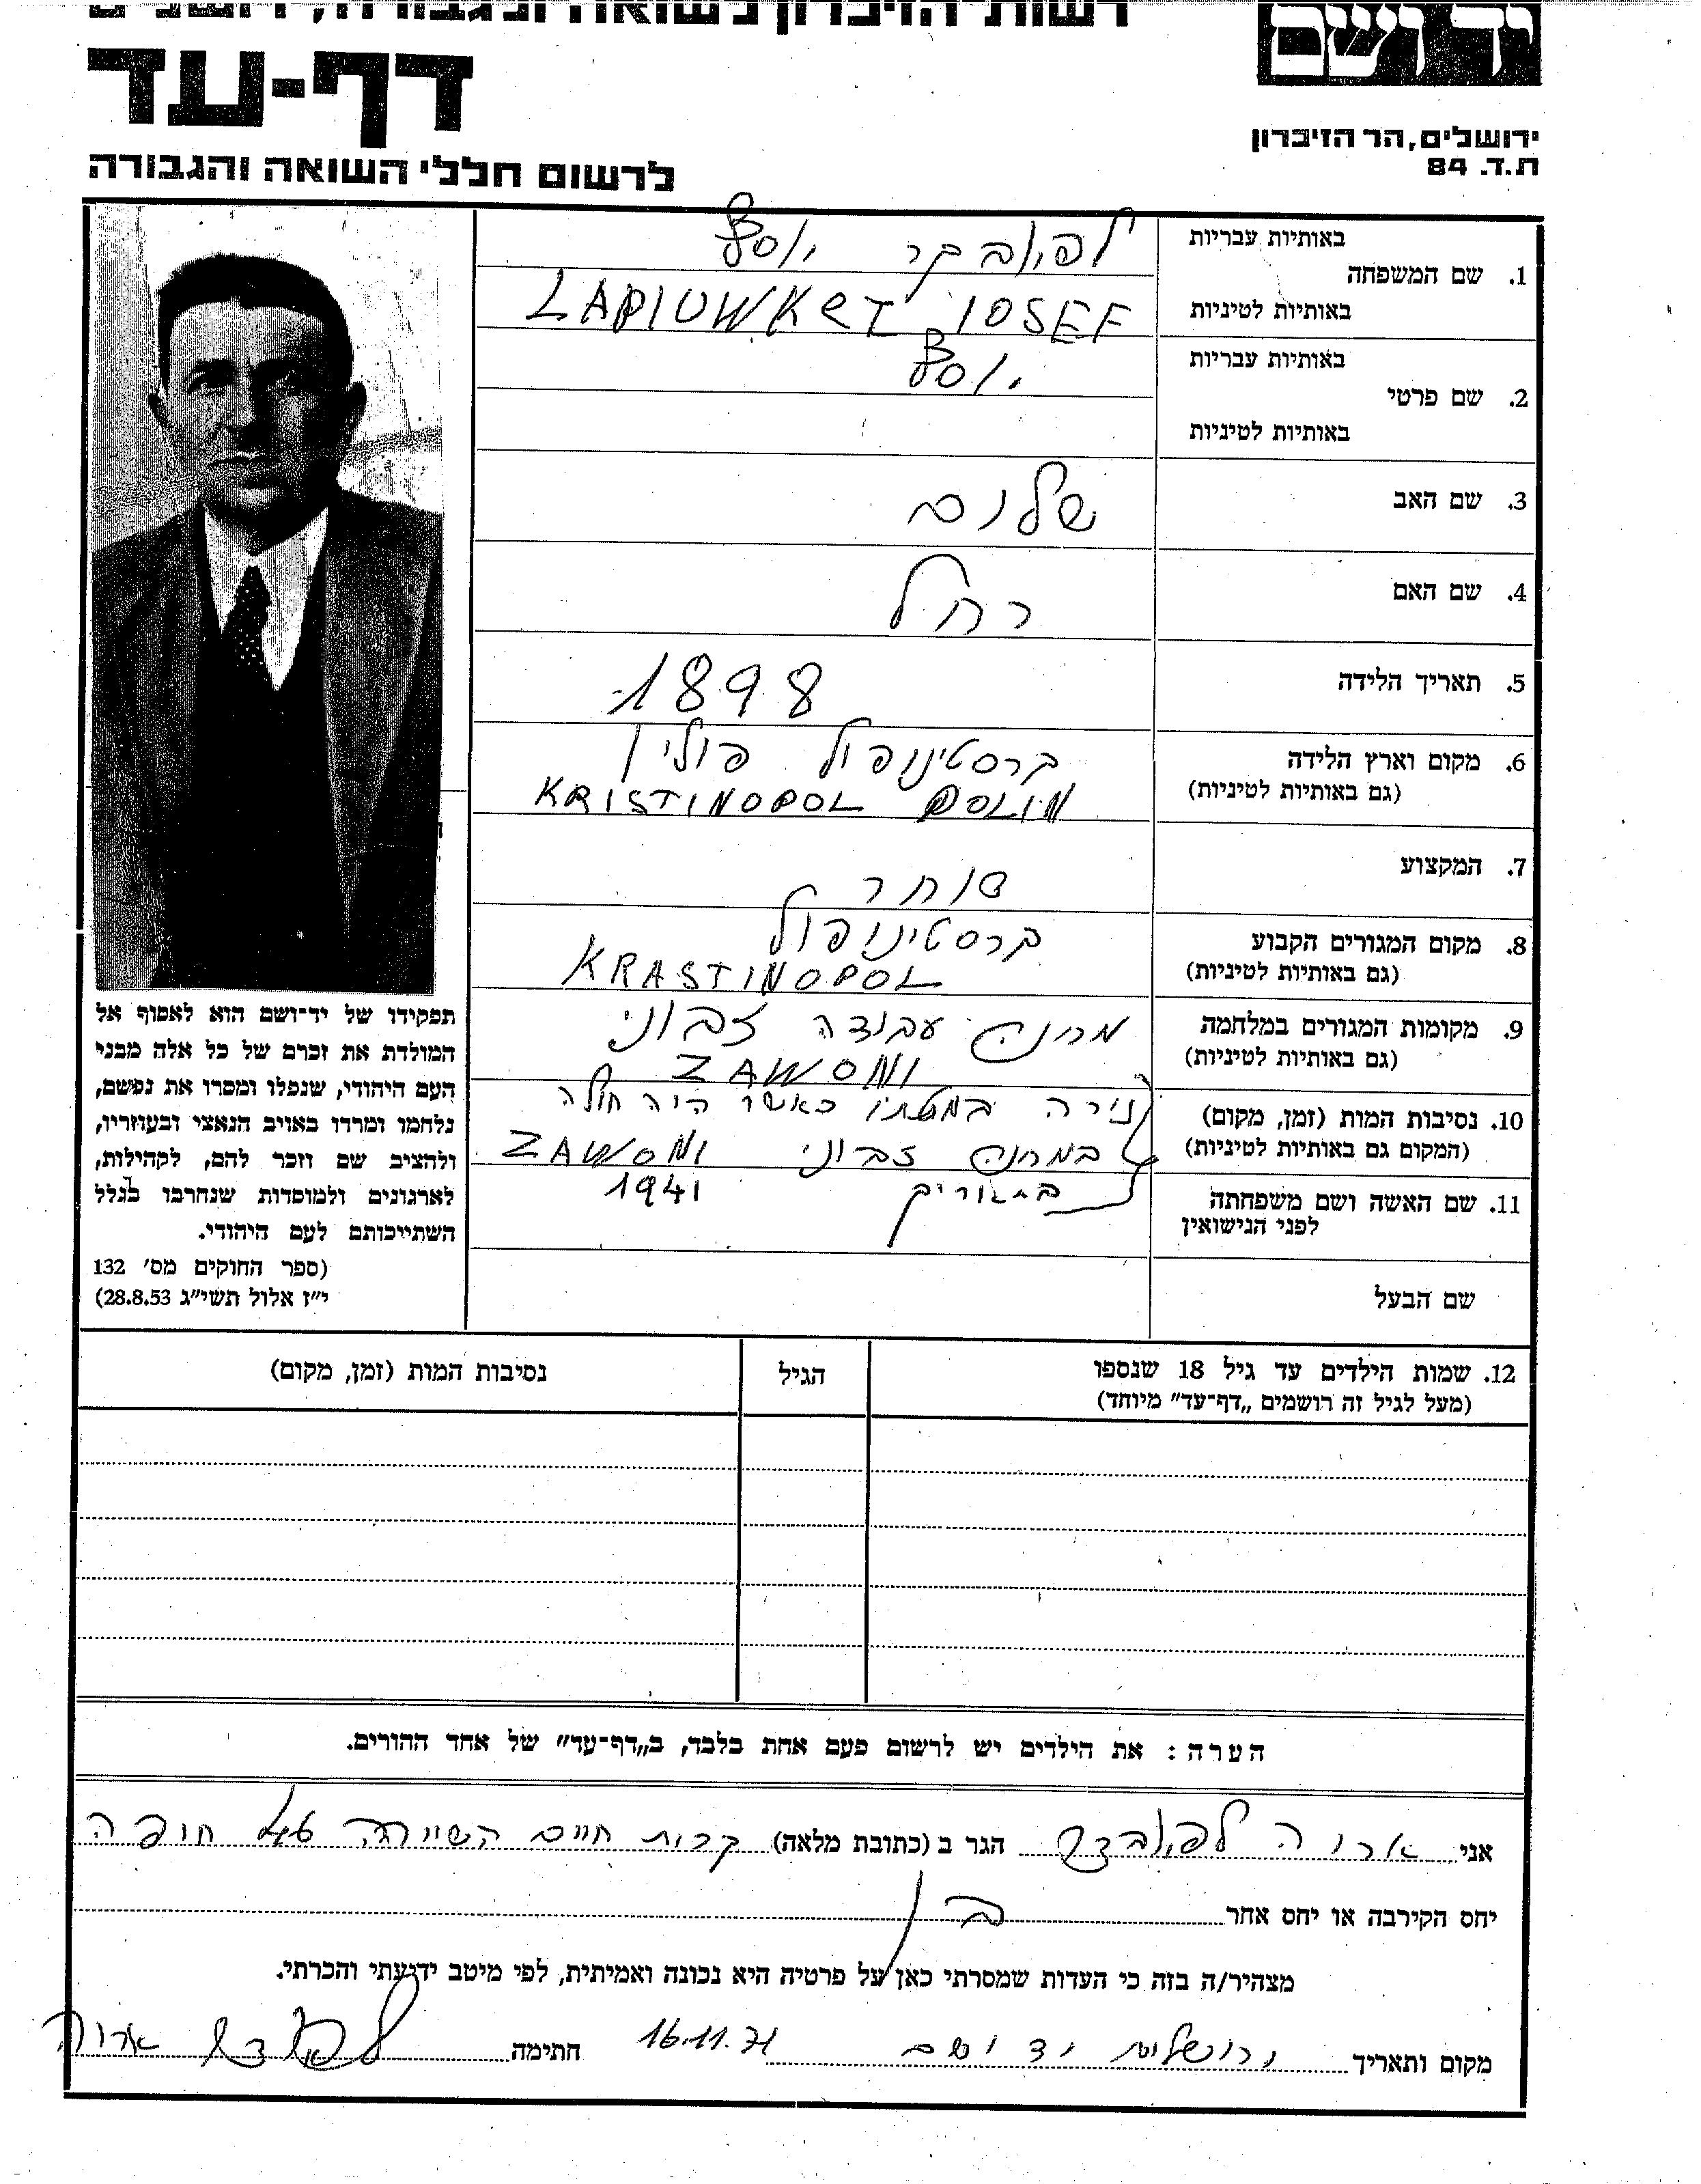 רשות הזיכרון לשואה ולגבורה, ירושלים
יד ושם
דף-עד
ירושלים, הר הזיכרון
ת.ד. 84
לרשום חללי השואה והגבורה
באותיות עבריות
יוסף
1. שם המשפחה
באותיות לטיניות
IOSEF
באותיות עבריות
יוסף
2. שם פרטי
באותיות לטיניות
3. שם האב
שלום
4. שם האם
רחל
5. תאריך הלידה
1898
6. מקום וארץ הלידה
קרסטינופול פולין
(גם באותיות לטיניות)
KRISTINOPOL POLIN
7. המקצוע
סוחר
8. מקום המגורים הקבוע
קרסטינופול
(גם באותיות לטיניות)
KRASTINOPOL
9. מקומות המגורים במלחמה
מחנה עבודה זבוני
(גם באותיות לטיניות)
ZAWONI
10. נסיבות המות (זמן, מקום)
נורה במטתו כאשר היה חולה
(המקום גם באותיות לטיניות)
במחנה זבוני ZAWONI
11. שם האשה ושם משפחתה
לפני הנישואין
בתאריך 1941
שם הבעל
תפקידו של יד־ושם הוא לאסוף אל
המולדת את זכרם של כל אלה מבני
העם היהודי, שנפלו ומסרו את נפשם,
נלחמו ומרדו באויב הנאצי ובעוזריו,
ולהציב שם וזכר להם, לקהילות,
לארגונים ולמוסדות שנחרבו בגלל
השתייכותם לעם היהודי.
(ספר החוקים מס׳ 132
י״ז אלול תשי״ג 28.8.53)
12. שמות הילדים עד גיל 18 שנספו
(מעל לגיל זה רושמים „דף־עד״ מיוחד)
הגיל
נסיבות המות (זמן, מקום)
הערה: את הילדים יש לרשום פעם אחת בלבד, ב„דף־עד״ של אחד ההורים.
אני הגר ב (כתובת מלאה) קרית חיים
יחס הקירבה או יחס אחר בן
מצהיר/ה בזה כי העדות שמסרתי כאן על פרטיה היא נכונה ואמיתית, לפי מיטב ידיעתי והכרתי.
מקום ותאריך ירושלים יד ושם 16.11.71 חתימה